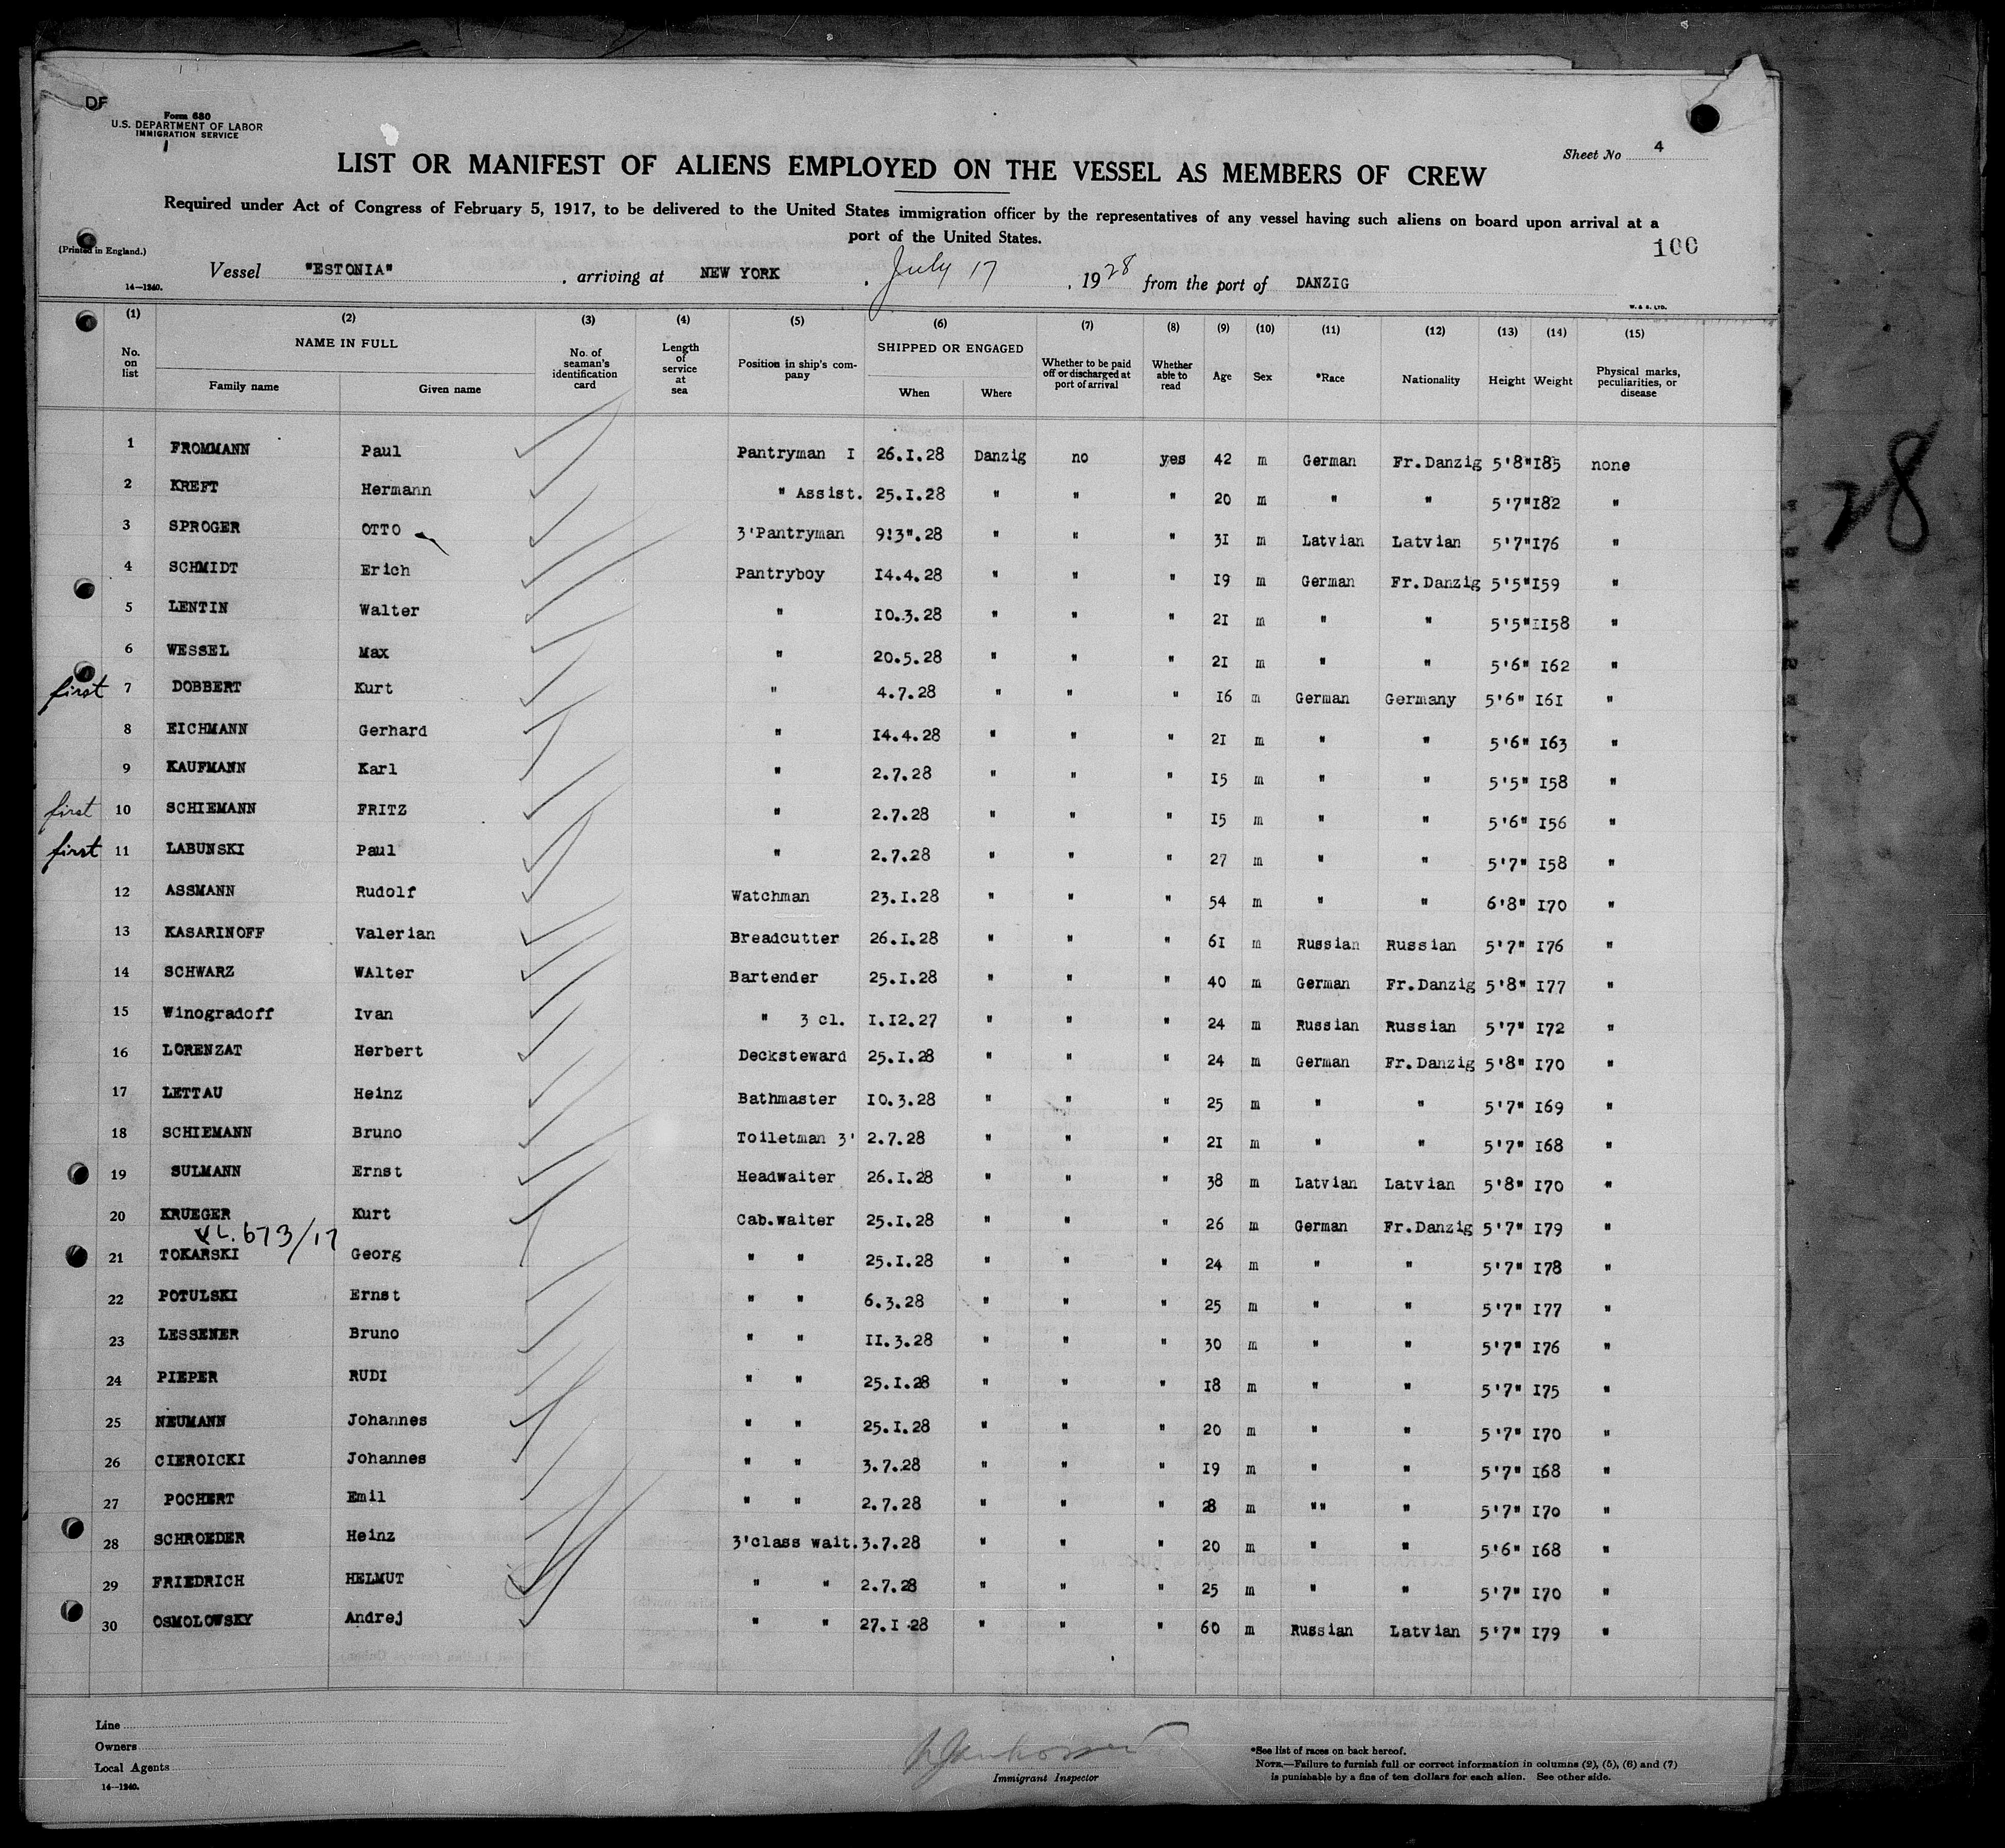 DF
Form 680
U.S. DEPARTMENT OF LABOR
IMMIGRATION SERVICE
Sheet No 4
LIST OR MANIFEST OF ALIENS EMPLOYED ON THE VESSEL AS MEMBERS OF CREW
Required under Act of Congress of February 5, 1917, to be delivered to the United States immigration officer by the representatives of any vessel having such aliens on board upon arrival at a
port of the United States.
100
(Printed in England.)
Vessel "ESTONIA" , arriving at NEW YORK , July 17 , 1928 from the port of DANZIG
14—1240.
W. & S. LTD.
(1) (2) (3) (4) (5) (6) (7) (8) (9) (10) (11) (12) (13) (14) (15)
No. on list
NAME IN FULL
Family name Given name
No. of seaman's identification card
Length of service at sea
Position in ship's company
SHIPPED OR ENGAGED
When Where
Whether to be paid off or discharged at port of arrival
Whether able to read
Age Sex *Race Nationality Height Weight
Physical marks, peculiarities, or disease
1 FROMMANN Paul Pantryman I 26.I.28 Danzig no yes 42 m German Fr.Danzig 5'8" I85 none
2 KREFT Hermann " Assist. 25.I.28 " " " 20 m " " 5'7" I82 "
3 SPROGER OTTO 3'Pantryman 9!3".28 " " " 3I m Latvian Latvian 5'7" I76 "
4 SCHMIDT Erich Pantryboy I4.4.28 " " " I9 m German Fr.Danzig 5'5" I59 "
5 LENTIN Walter " I0.3.28 " " " 2I m " " 5'5" I158 "
6 WESSEL Max " 20.5.28 " " " 2I m " " 5'6" I62 "
first 7 DOBBERT Kurt " 4.7.28 " " " I6 m German Germany 5'6" I6I "
8 EICHMANN Gerhard " I4.4.28 " " " 2I m " " 5'6" I63 "
9 KAUFMANN Karl " 2.7.28 " " " I5 m " " 5'5" I58 "
first 10 SCHIEMANN FRITZ " 2.7.28 " " " I5 m " " 5'6" I56 "
first 11 LABUNSKI Paul " 2.7.28 " " " 27 m " " 5'7" I58 "
12 ASSMANN Rudolf Watchman 23.I.28 " " " 54 m " " 6'8" I70 "
13 KASARINOFF Valerian Breadcutter 26.I.28 " " " 6I m Russian Russian 5'7" I76 "
14 SCHWARZ WAlter Bartender 25.I.28 " " " 40 m German Fr.Danzig 5'8" I77 "
15 Winogradoff Ivan " 3 cl. I.I2.27 " " " 24 m Russian Russian 5'7" I72 "
16 LORENZAT Herbert Decksteward 25.I.28 " " " 24 m German Fr.Danzig 5'8" I70 "
17 LETTAU Heinz Bathmaster I0.3.28 " " " 25 m " " 5'7" I69 "
18 SCHIEMANN Bruno Toiletman 3' 2.7.28 " " " 2I m " " 5'7" I68 "
19 SULMANN Ernst Headwaiter 26.I.28 " " " 38 m Latvian Latvian 5'8" I70 "
20 KRUEGER Kurt Cab.waiter 25.I.28 " " " 26 m German Fr.Danzig 5'7" I79 "
673/17
21 TOKARSKI Georg " " 25.I.28 " " " 24 m " " 5'7" I78 "
22 POTULSKI Ernst " " 6.3.28 " " " 25 m " " 5'7" I77 "
23 LESSENER Bruno " " II.3.28 " " " 30 m " " 5'7" I76 "
24 PIEPER RUDI " " 25.I.28 " " " I8 m " " 5'7" I75 "
25 NEUMANN Johannes " " 25.I.28 " " " 20 m " " 5'7" I70 "
26 CIEROICKI Johannes " " 3.7.28 " " " I9 m " " 5'7" I68 "
27 POCHERT Emil " " 2.7.28 " " " 28 m "" " 5'7" I70 "
28 SCHROEDER Heinz 3'class wait. 3.7.28 " " " 20 m " " 5'6" I68 "
29 FRIEDRICH HELMUT " " 2.7.28 " " " 25 m " " 5'7" I70 "
30 OSMOLOWSKY Andrej " " 27.I 28 " " " 60 m Russian Latvian 5'7" I79 "
28
Line
Owners
Local Agents
14—1240.
Immigrant Inspector
*See list of races on back hereof.
NOTE.—Failure to furnish full or correct information in columns (2), (5), (6) and (7)
is punishable by a fine of ten dollars for each alien. See other side.